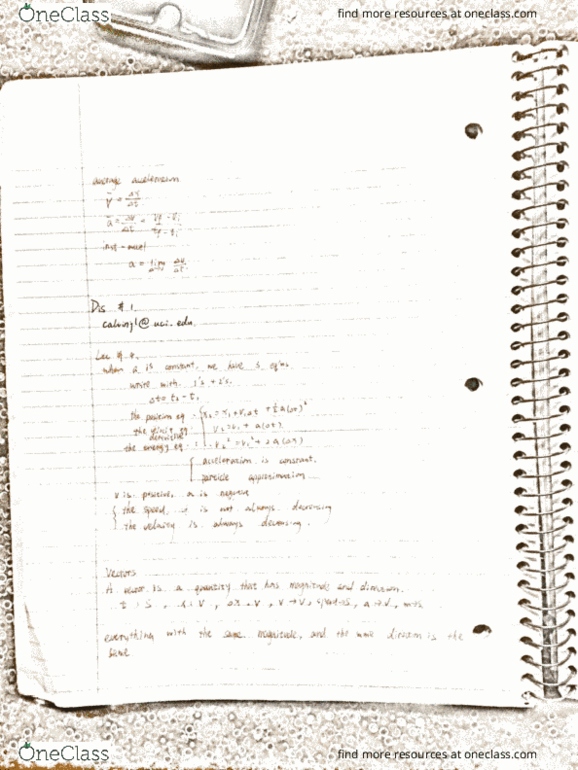 OneClass
find more resources at oneclass.com
average acceleration
v̄ = Δx/Δt
ā = Δv/Δt =
inst-accel
a = lim Δv/Δt
Dis #1.
@uci.edu.
Lec #
when a is constant, we have 3 eq'ns
write with 1's + 2's.
Δt = t₂ - t₁
the position eq
+ v₁Δt + ½a(Δt)²
the eq
v₂ = v₁ + a(Δt)
the energy eq : v₂² = v₁² + 2a(Δx)
acceleration is constant.
particle approximation
v is positive, a is negative
the speed is not always decreasing
the velocity is always decreasing.
Vectors
A vector is a quantity that has magnitude and direction.
everything with the same magnitude, and the same direction is the
same
OneClass
find more resources at oneclass.com